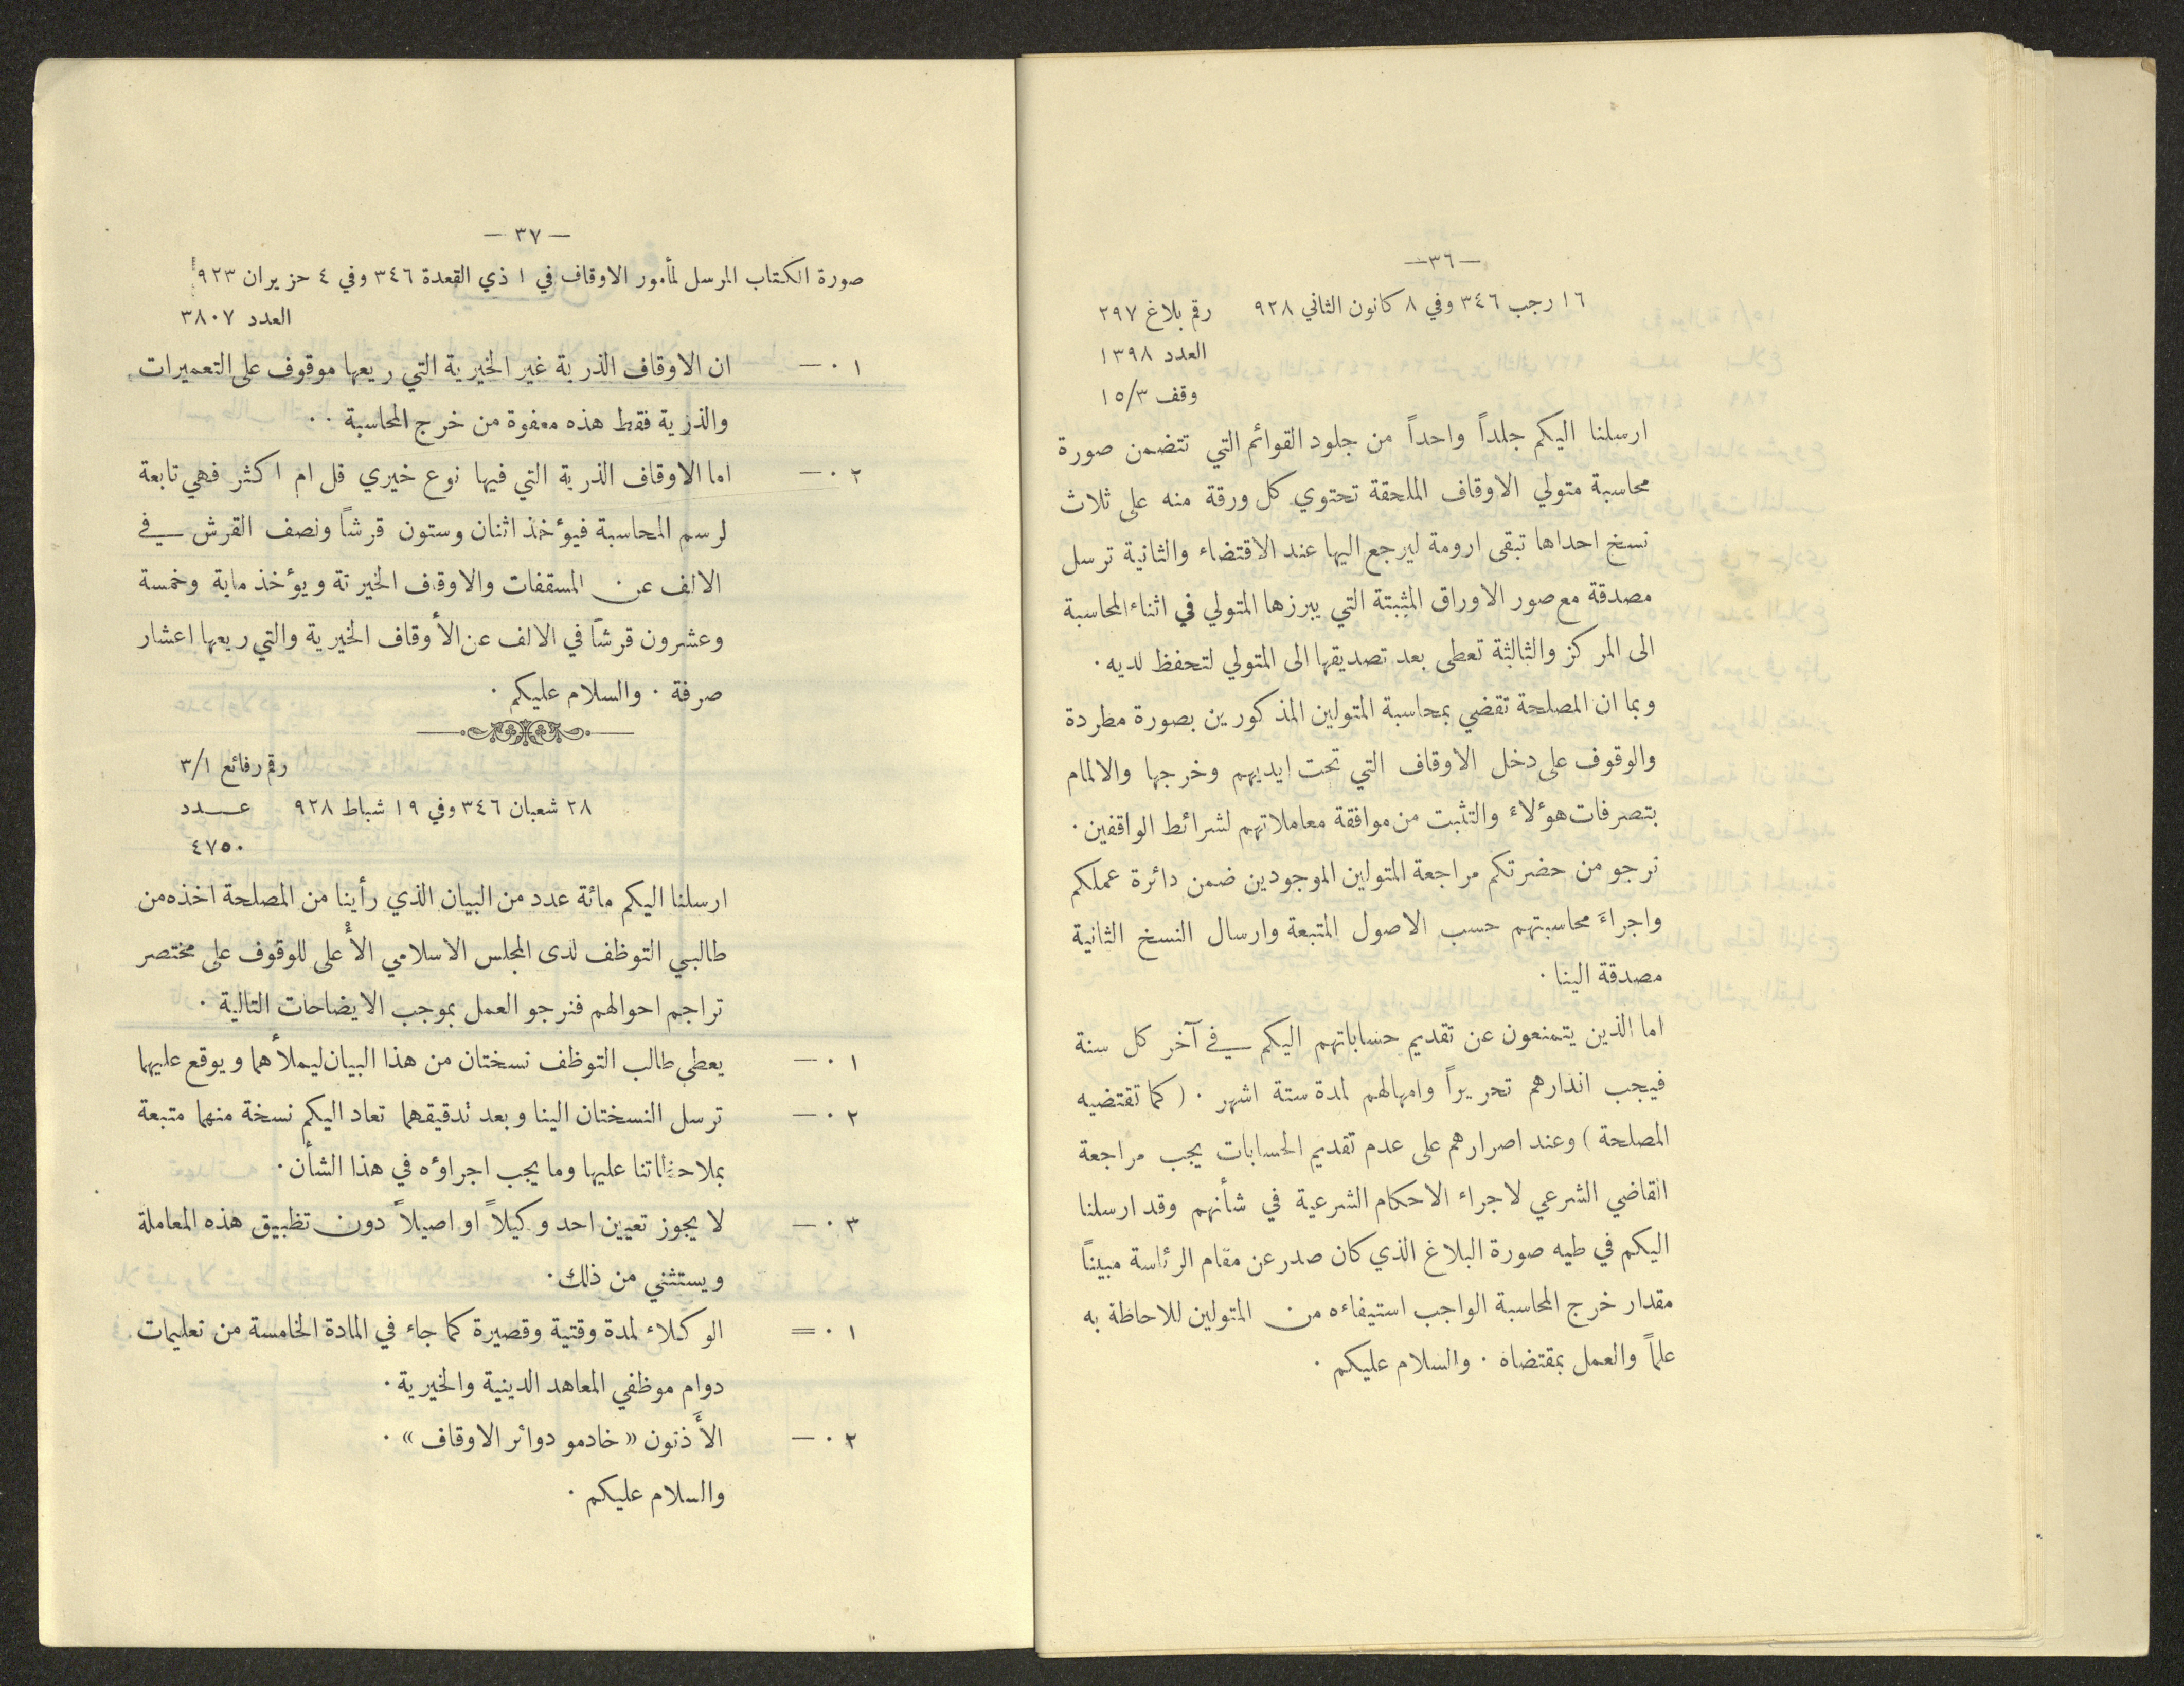 —٣٦—
١٦ رجب ٣٤٦ وفي ٨ كانون الثاني ٩٢٨ رقم بلاغ ٢٩٧
العدد ١٣٩٨
وقف ١٥/٣
ارسلنا اليكم جلداً واحداً من جلود القوائم التي تتضمن صورة
محاسبة متولي الاوقاف الملحقة تحتوي كل ورقة منه على ثلاث
نسخ احداها تبقى ارومة ليرجع اليها عند الاقتضاء والثانية ترسل
مصدقة مع صور الاوراق المثبتة التي يبرزها المتولي في اثناء المحاسبة
الى المركز والثالثة تعطى بعد تصديقها الى المتولي لتحفظ لديه ·
وبما ان المصلحة تقضي بمحاسبة المتولين المذكورين بصورة مطردة
والوقوف على دخل الاوقاف التي تحت ايديهم وخرجها والالمام
بتصرفات هؤلاء والتثبت من موافقة معاملاتهم لشرائط الواقفين ·
نرجو من حضرتكم مراجعة المتولين الموجودين ضمن دائرة عملكم
واجراءَ محاسبتهم حسب الاصول المتبعة وارسال النسخ الثانية
مصدقة الينا ·
اما الذين يتمنعون عن تقديم حساباتهم اليكم في آخر كل سنة
فيجب انذارهم تحريراً وامهالهم لمدة ستة اشهر · ( كما تقتضيه
المصلحة ) وعند اصرارهم على عدم تقديم الحسابات يجب مراجعة
القاضي الشرعي لاجراء الاحكام الشرعية في شأنهم وقد ارسلنا
اليكم في طيه صورة البلاغ الذي كان صدر عن مقام الرئاسة مبيناً
مقدار خرج المحاسبة الواجب استيفاءه من المتولين للاحاطة به
علماً والعمل بمقتضاه · والسلام عليكم ·
— ٣٧ —
صورة الكتاب المرسل لمأمور الاوقاف في ١ ذي القعدة ٣٤٦ وفي ٤ حزيران ٩٢٣
العدد ٣٨٠٧
١ ·— ان الاوقاف الذرية غير الخيرية التي ريعها موقوف على التعميرات
والذرية فقط هذه معفوة من خرج المحاسبة ··
٢ ·— اما الاوقاف الذرية التي فيها نوع خيري قل ام اكثر فهي تابعة
لرسم المحاسبة فيؤخذ اثنان وستون قرشاً ونصف القرش في
الالف عن المسقفات والاوقاف الخيرتة ويؤخذ ماية وخمسة
وعشرون قرشاً في الالف عن الأوقاف الخيرية والتي ريعها اعشار
صرفة · والسلام عليكم ·
رقم رفائع ٣/١
٢٨ شعبان ٣٤٦ وفي ١٩ شباط ٩٢٨ عـــدد
٤٧٥٠
ارسلنا اليكم مائة عدد من البيان الذي رأينا من المصلحة اخذه من
طالبي التوظف لدى المجلس الاسلامي الأعلى للوقوف على مختصر
تراجم احوالهم فنرجو العمل بموجب الايضاحات التالية ·
١ ·— يعطي طالب التوظف نسختان من هذا البيان ليملأهما ويوقع عليهما
٢ ·— ترسل النسختان الينا وبعد تدقيقهما تعاد اليكم نسخة منهما متبعة
بملاحظاتنا عليها وما يجب اجراؤه في هذا الشأن ·
٣ ·— لا يجوز تعيين احد وكيلاً او اصيلاً دون تطبيق هذه المعاملة
ويستثني من ذلك ·
١ ·= الوكلاء لمدة وقتية وقصيرة كما جاء في المادة الخامسة من تعليمات
دوام موظفي المعاهد الدينية والخيرية ·
٢ ·— الأَذنون « خادمو دوائر الاوقاف » ·
والسلام عليكم ·